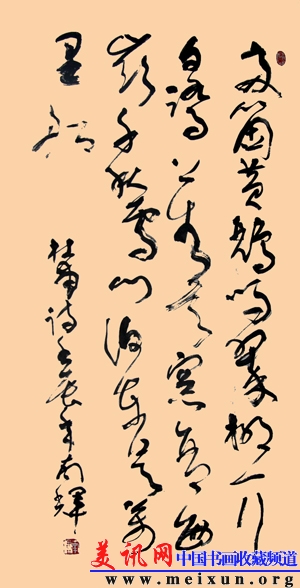 两个黄鹂鸣翠柳一行
白鹭上青天窗含西
岭千秋雪门泊东吴万
里船
杜甫诗
美讯网 中国书画收藏频道
www.meixun.org